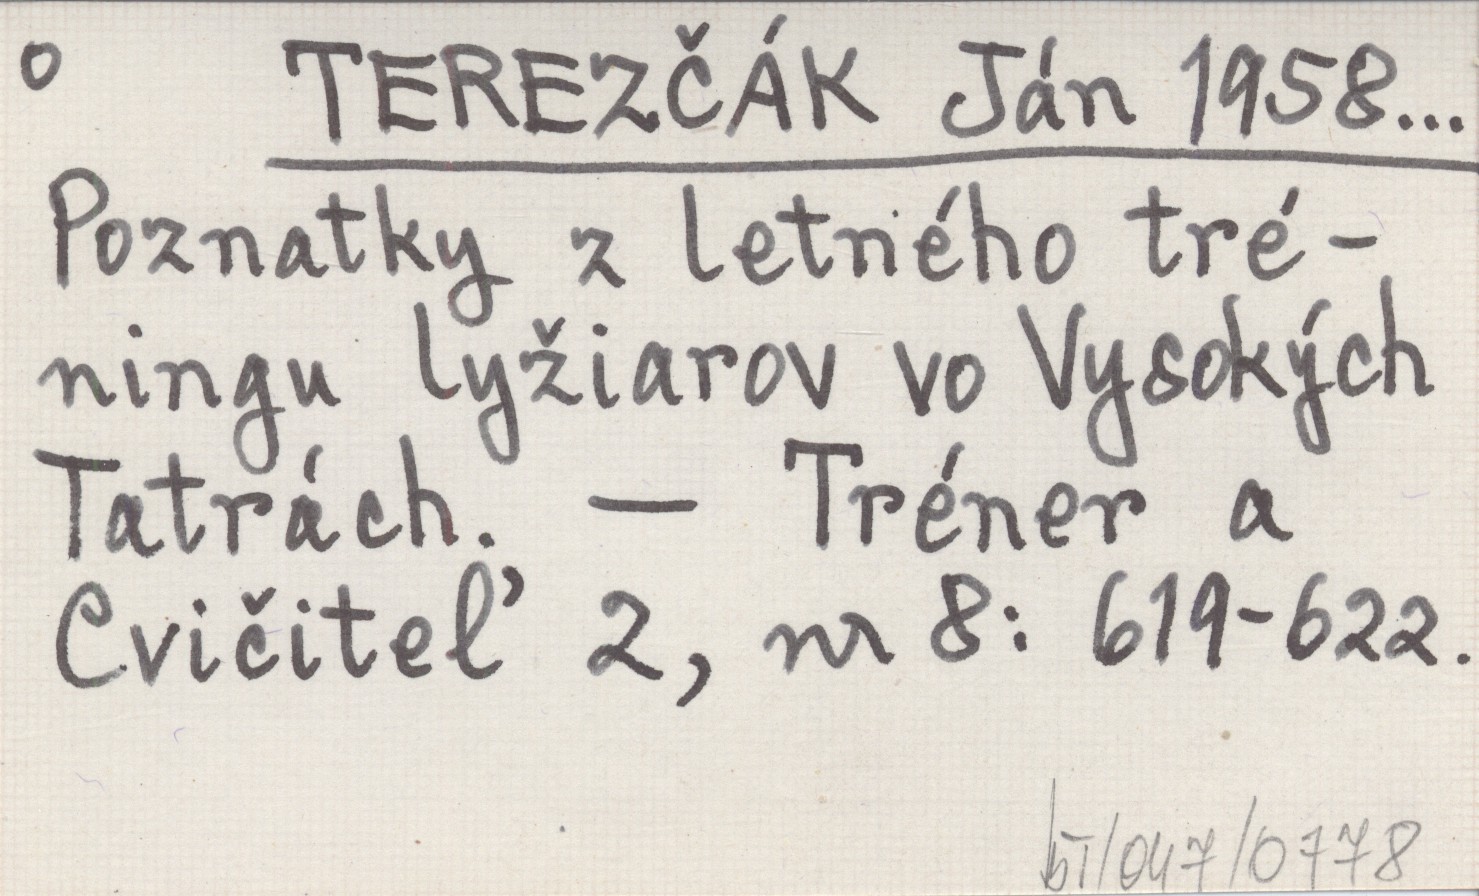 o TEREZČÁK Ján 1958...
Poznatky z letného tré-
ningu lyžiarov vo Vysokých
Tatrách. — Tréner a
Cvičiteľ 2, nr 8: 619-622.
bT/047/0778